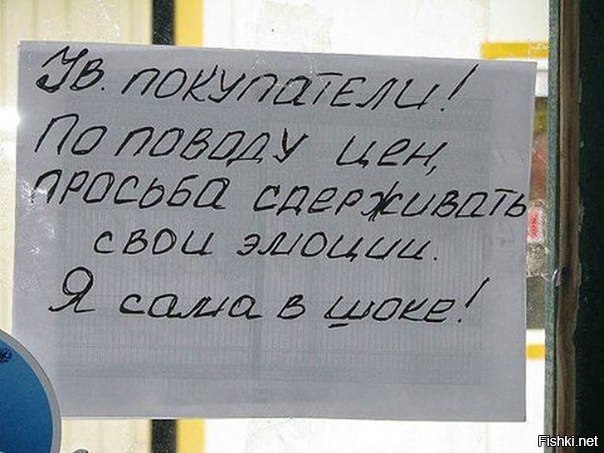 Ув. покупатели!
По поводу цен,
просьба сдерживать
свои эмоции.
Я сама в шоке!
Fishki.net